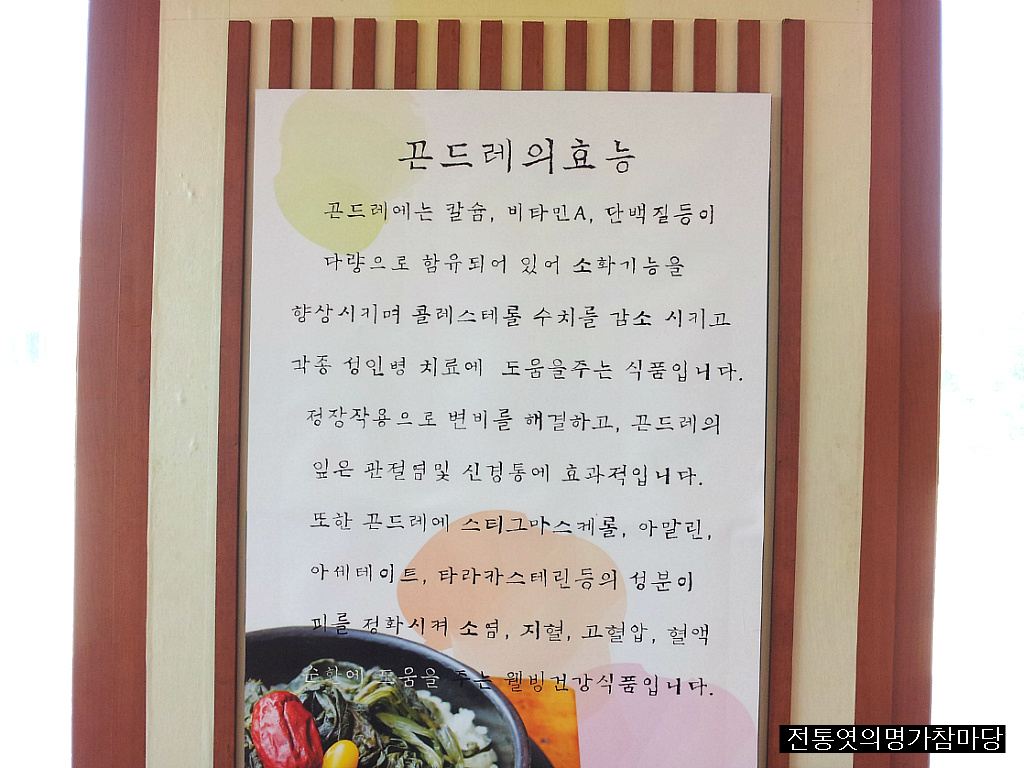 곤드레의효능
곤드레에는 칼슘, 비타민A, 단백질등이
다량으로 함유되어 있어 소화기능을
향상시키며 콜레스테롤 수치를 감소 시키고
각종 성인병 치료에 도움을주는 식품입니다.
정장작용으로 변비를 해결하고, 곤드레의
잎은 관절염및 신경통에 효과적입니다.
또한 곤드레에 스티그마스케롤, 아말린,
아세테이트, 타라카스테린등의 성분이
피를 정화시켜 소염, 지혈, 고혈압, 혈액
순환에 도움을 주는 웰빙건강식품입니다.
전통엿의명가참마당